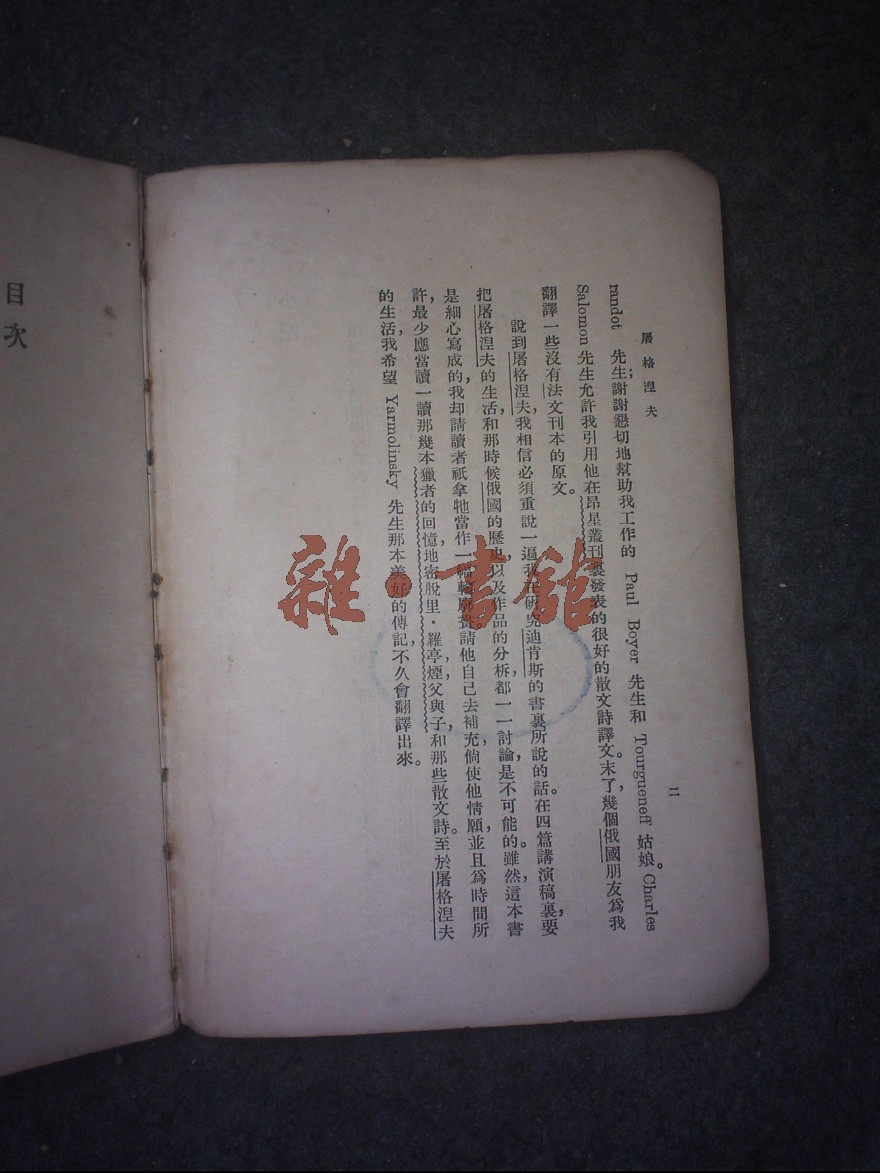 屠格涅夫
二
randot 先生；謝謝懇切地幫助我工作的 Paul Boyer 先生和 Tourgueneff 姑娘。Charles
Salomon 先生允許我引用他在昂星叢刊裏發表的很好的散文詩譯文。末了，幾個俄國朋友爲我
翻譯一些沒有法文刊本的原文。
說到屠格涅夫，我相信必須重說一遍我在研究迪肯斯的書裏所說的話。在四篇講演稿裏，要
把屠格涅夫的生活，和那時候俄國的歷史，以及作品的分析，都一一討論，是不可能的。雖然，這本書
是細心寫成的，我却請讀者祇拿牠當作一幅輪廓畫。請他自己去補充，倘使他情願，並且爲時間所
許，最少應當讀一讀那幾本獵者的回憶，地密脫里·羅亭，煙，父與子，和那些散文詩。至於屠格涅夫
的生活，我希望 Yarmolinsky 先生那本美好的傳記，不久會翻譯出來。
目次
雜·書館